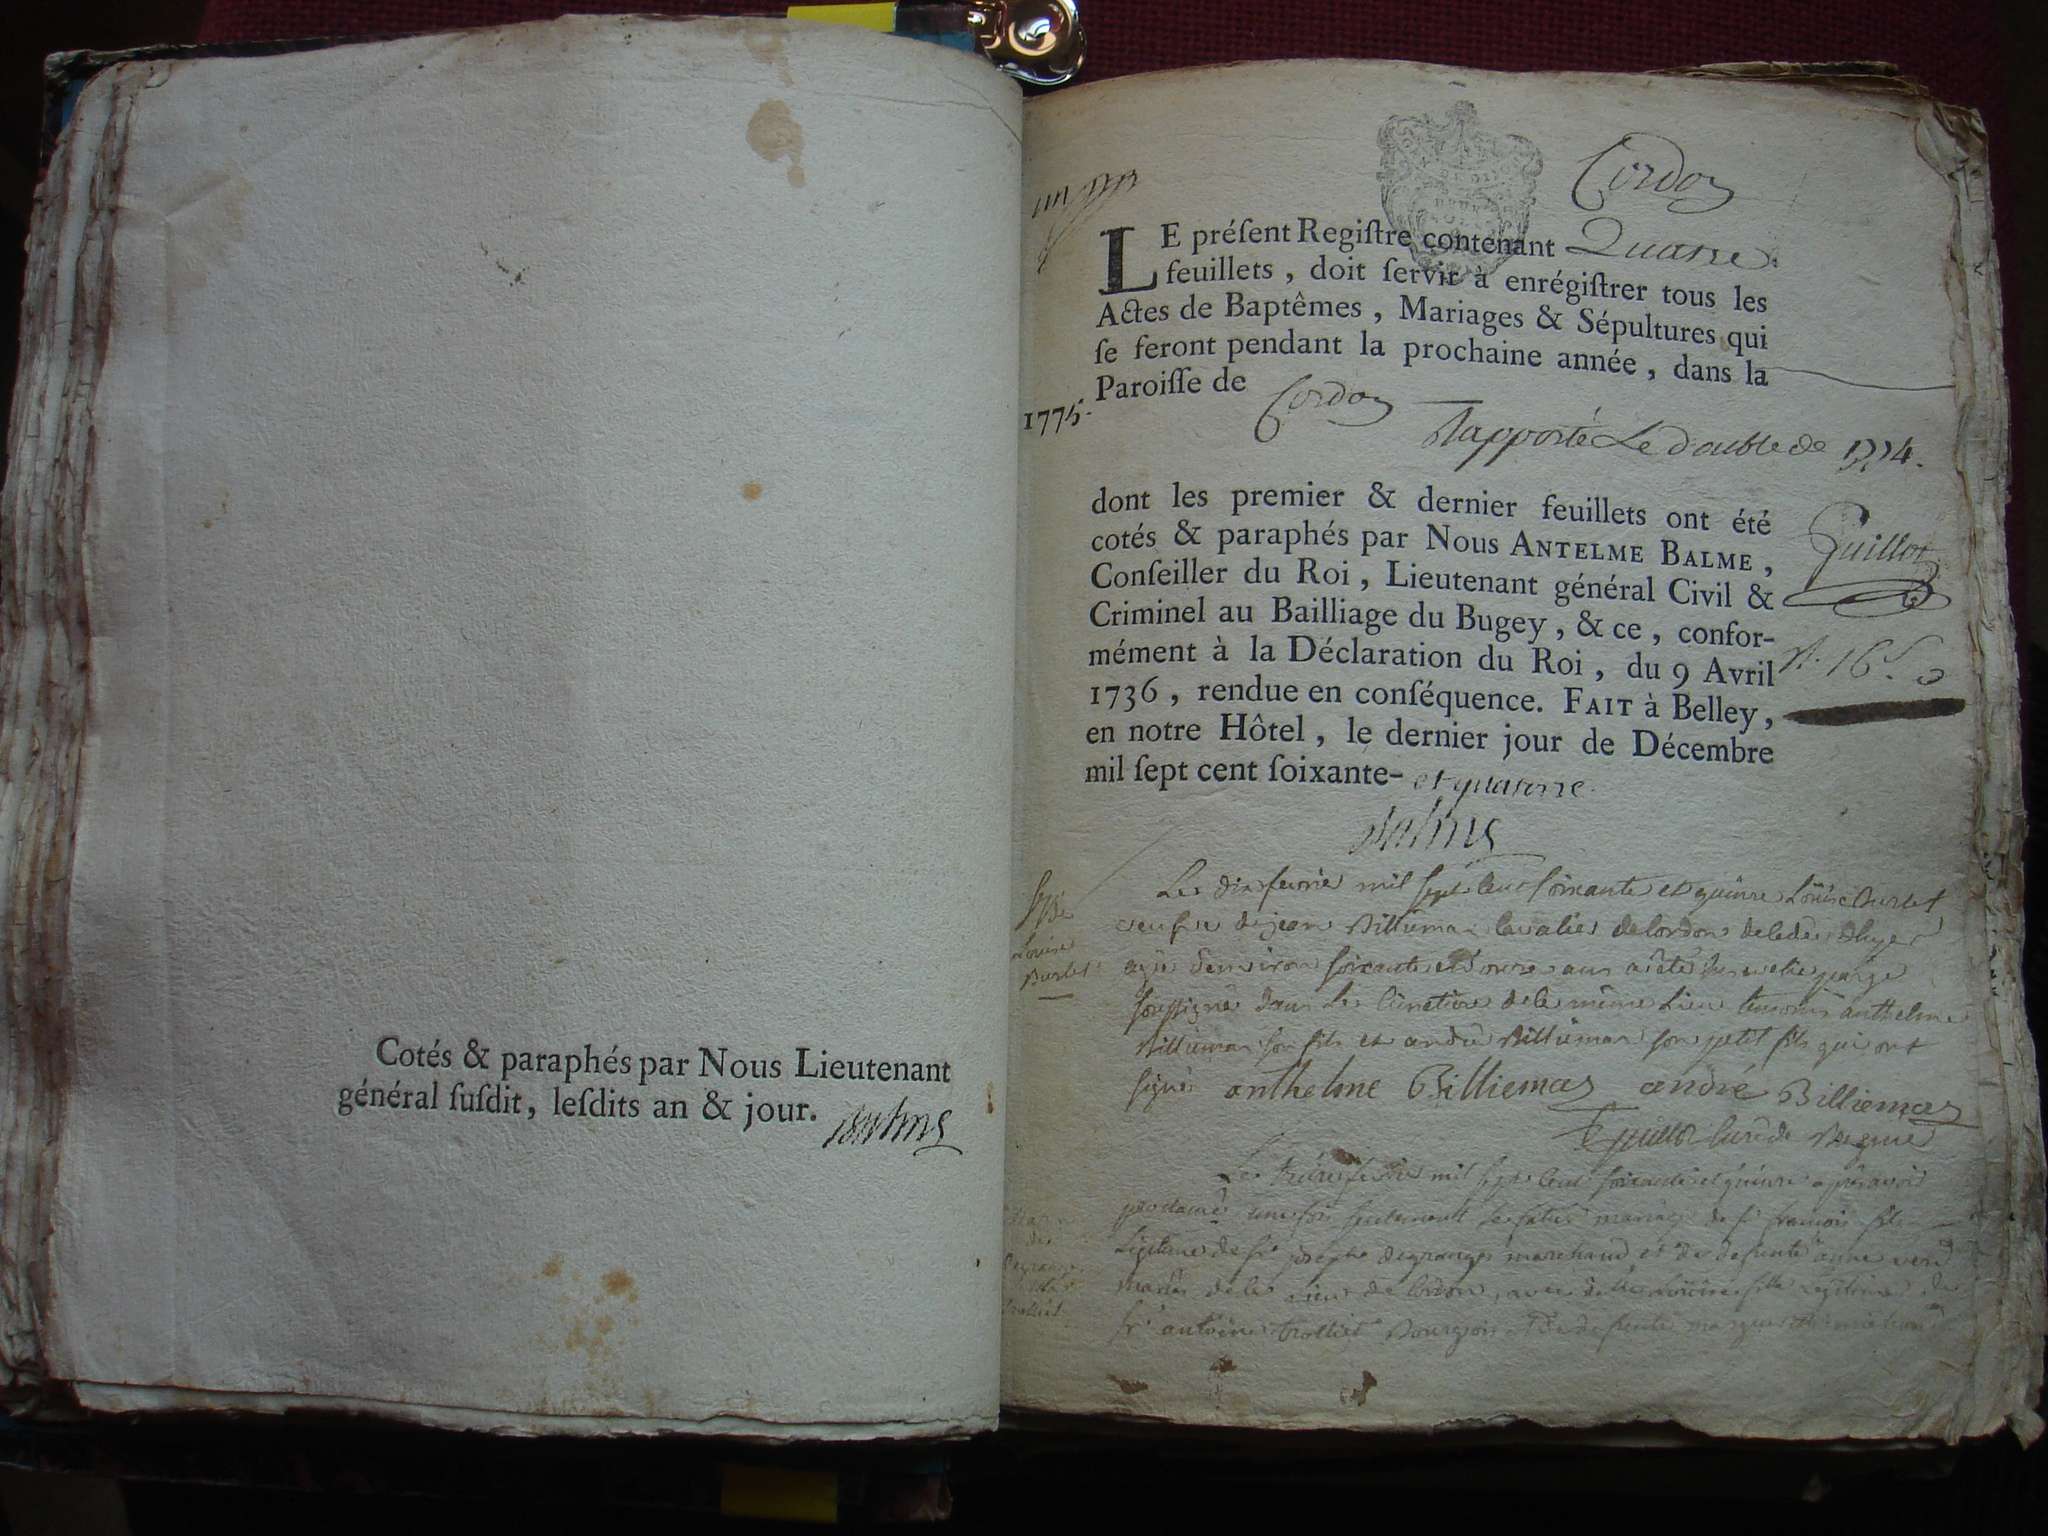 Cotés & paraphés par Nous Lieutenant
général suſdit, leſdits an & jour. Balme
Cordon
LE préſent Regiſtre contenant Quatre
feuillets, doit ſervir à enrégiſtrer tous les
Actes de Baptêmes, Mariages & Sépultures qui
ſe feront pendant la prochaine année, dans la
Paroiſſe de Cordon
1775.
Rapporté Le double de 1774.
dont les premier & dernier feuillets ont été
cotés & paraphés par Nous ANTELME BALME,
Conſeiller du Roi, Lieutenant général Civil &
Criminel au Bailliage du Bugey, & ce, confor-
mément à la Déclaration du Roi, du 9 Avril
1736, rendue en conſéquence. FAIT à Belley,
en notre Hôtel, le dernier jour de Décembre
mil ſept cent ſoixante- et quatorze
Guillot
Balme
Louise
Burlet
Le dix fevrié mil sept cent soixante et quinze Loüise Burlet
veufve de jean Billiemaz de Cordon
agée d'environ soixante et ans a été
soussigné dans le cimetière de le même lieu temoins anthelme
Billiemaz son fils et andré Billiemaz son petit fils qui ont
signés anthelme Billiemaz andré Billiemaz
Guillot curé de
Le fevrié mil sept cent soixante et quinze après avoir
proclamé une fois seulement le futur mariage de sr françois fils
Légitime de sr joseph degranges marchand et de defunte anne
mariés de Cordon, avec fille légitime de
sr antoine trolliet Bourgeois et de defunte